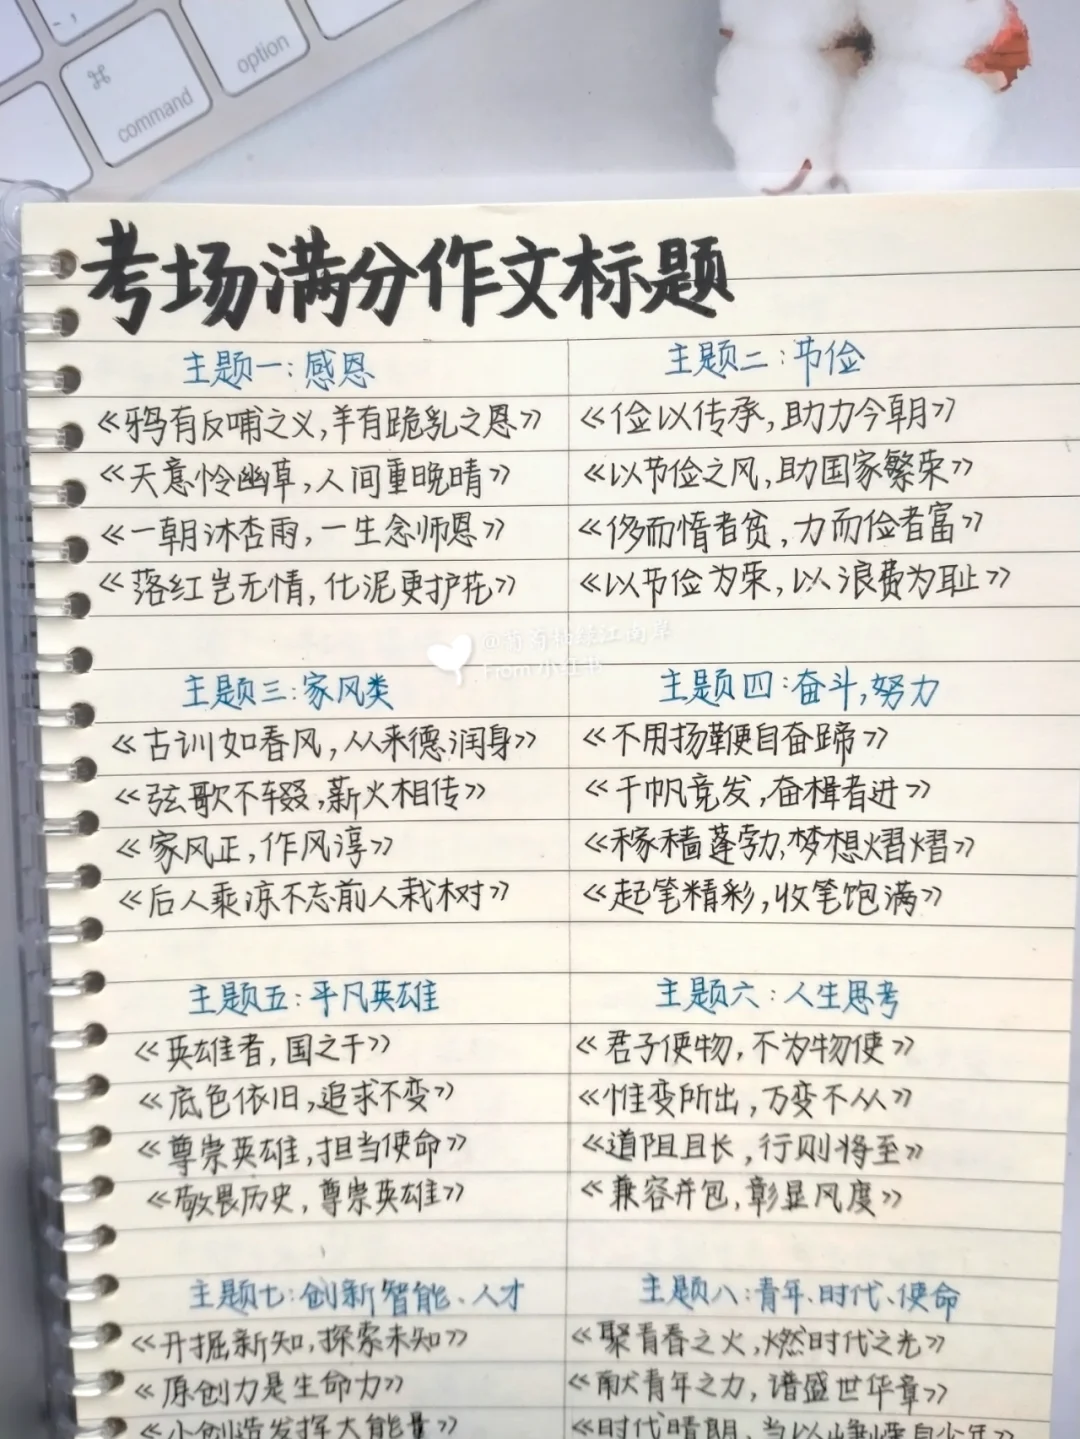 command
option
考场满分作文标题
主题一:感恩
《鸦有反哺之义,羊有跪乳之恩》
《天意怜幽草,人间重晚晴》
《一朝沐杏雨,一生念师恩》
《落红岂无情,化泥更护花》
主题二:节俭
《俭以传承,助力今朝》
《以节俭之风,助国家繁荣》
《侈而惰者贫,力而俭者富》
《以节俭为荣,以浪费为耻》
From 小红书
主题三:家风类
《古训如春风,从来德润身》
《弦歌不辍,薪火相传》
《家风正,作风淳》
《后人乘凉不忘前人栽树》
主题四:奋斗,努力
《不用扬鞭自奋蹄》
《千帆竞发,奋楫者进》
《稼穑蓬勃,梦想熠熠》
《起笔精彩,收笔饱满》
主题五:平凡英雄
《英雄者,国之干》
《底色依旧,追求不变》
《尊崇英雄,担当使命》
《敬畏历史,尊崇英雄》
主题六:人生思考
《君子使物,不为物使》
《惟变所出,万变不从》
《道阻且长,行则将至》
《兼容并包,彰显风度》
主题七:创新智能、人才
《开掘新知,探索未知》
《原创力是生命力》
《小创造发挥大能量》
主题八:青年、时代、使命
《聚青春之火,燃时代之光》
《献青年之力,谱盛世华章》
《时代晴朗,当以峥嵘自少年》